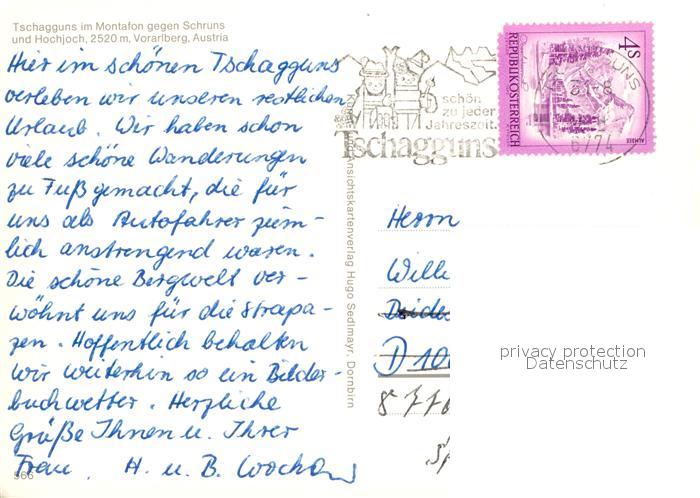 Tschagguns im Montafon gegen Schruns
und Hochjoch, 2520 m, Vorarlberg, Austria
Hier im schönen Tschagguns
verleben wir unseren restlichen
Urlaub. Wir haben schon
viele schöne Wanderungen
zu Fuß gemacht, die für
uns als Autofahrer ziem-
lich anstrengend waren.
Die schöne Bergwelt ver-
wöhnt uns für die Strapa-
zen. Hoffentlich behalten
wir weiterhin so ein Bilder-
buchwetter. Herzliche
Grüße Ihnen u. Ihrer
Frau. H. u. B.
566
Ansichtskartenverlag Hugo Sedlmayr, Dornbirn
schön
zu jeder
Jahreszeit.
Tschagguns
4 S
REPUBLIK ÖSTERREICH
ALMSEE
6774
Herrn
Willi
D 10
privacy protection
Datenschutz